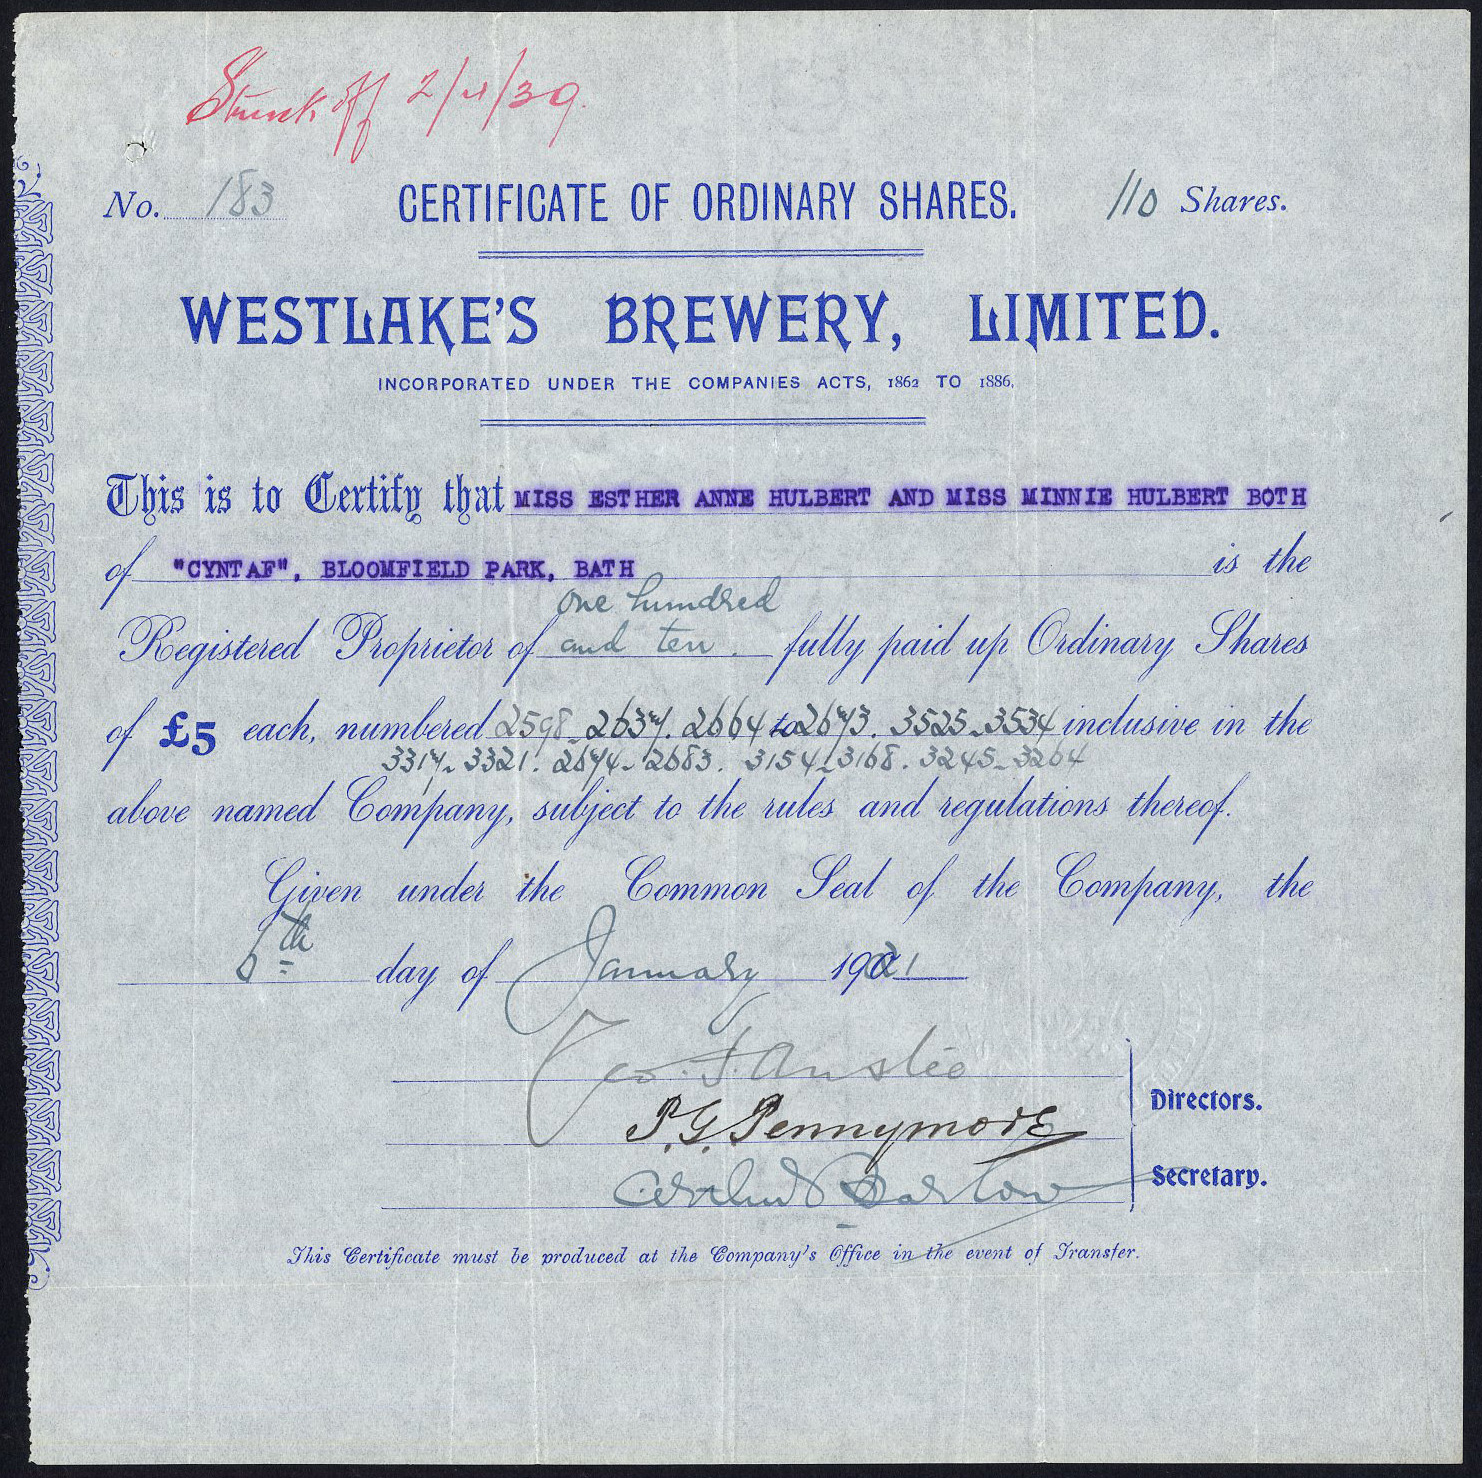 Struck off 2/4/39.
No. 183 CERTIFICATE OF ORDINARY SHARES. 110 Shares.
WESTLAKE'S BREWERY, LIMITED.
INCORPORATED UNDER THE COMPANIES ACTS, 1862 TO 1886,
This is to Certify that MISS ESTHER ANNE HULBERT AND MISS MINNIE HULBERT BOTH
of "CYNTAF", BLOOMFIELD PARK, BATH is the
one hundred
Registered Proprietor of and ten. fully paid up Ordinary Shares
of £5 each, numbered 2598-2637. 2664 to 2673. 3525-3534 inclusive in the
3317-3321. 2674-2683. 3154-3168. 3245-3264
above named Company, subject to the rules and regulations thereof.
Given under the Common Seal of the Company, the
6th day of January 1921
Geo. Anstee
P.G. Pennymore
Directors.
Arthur Barlow
Secretary.
This Certificate must be produced at the Company's Office in the event of Transfer.